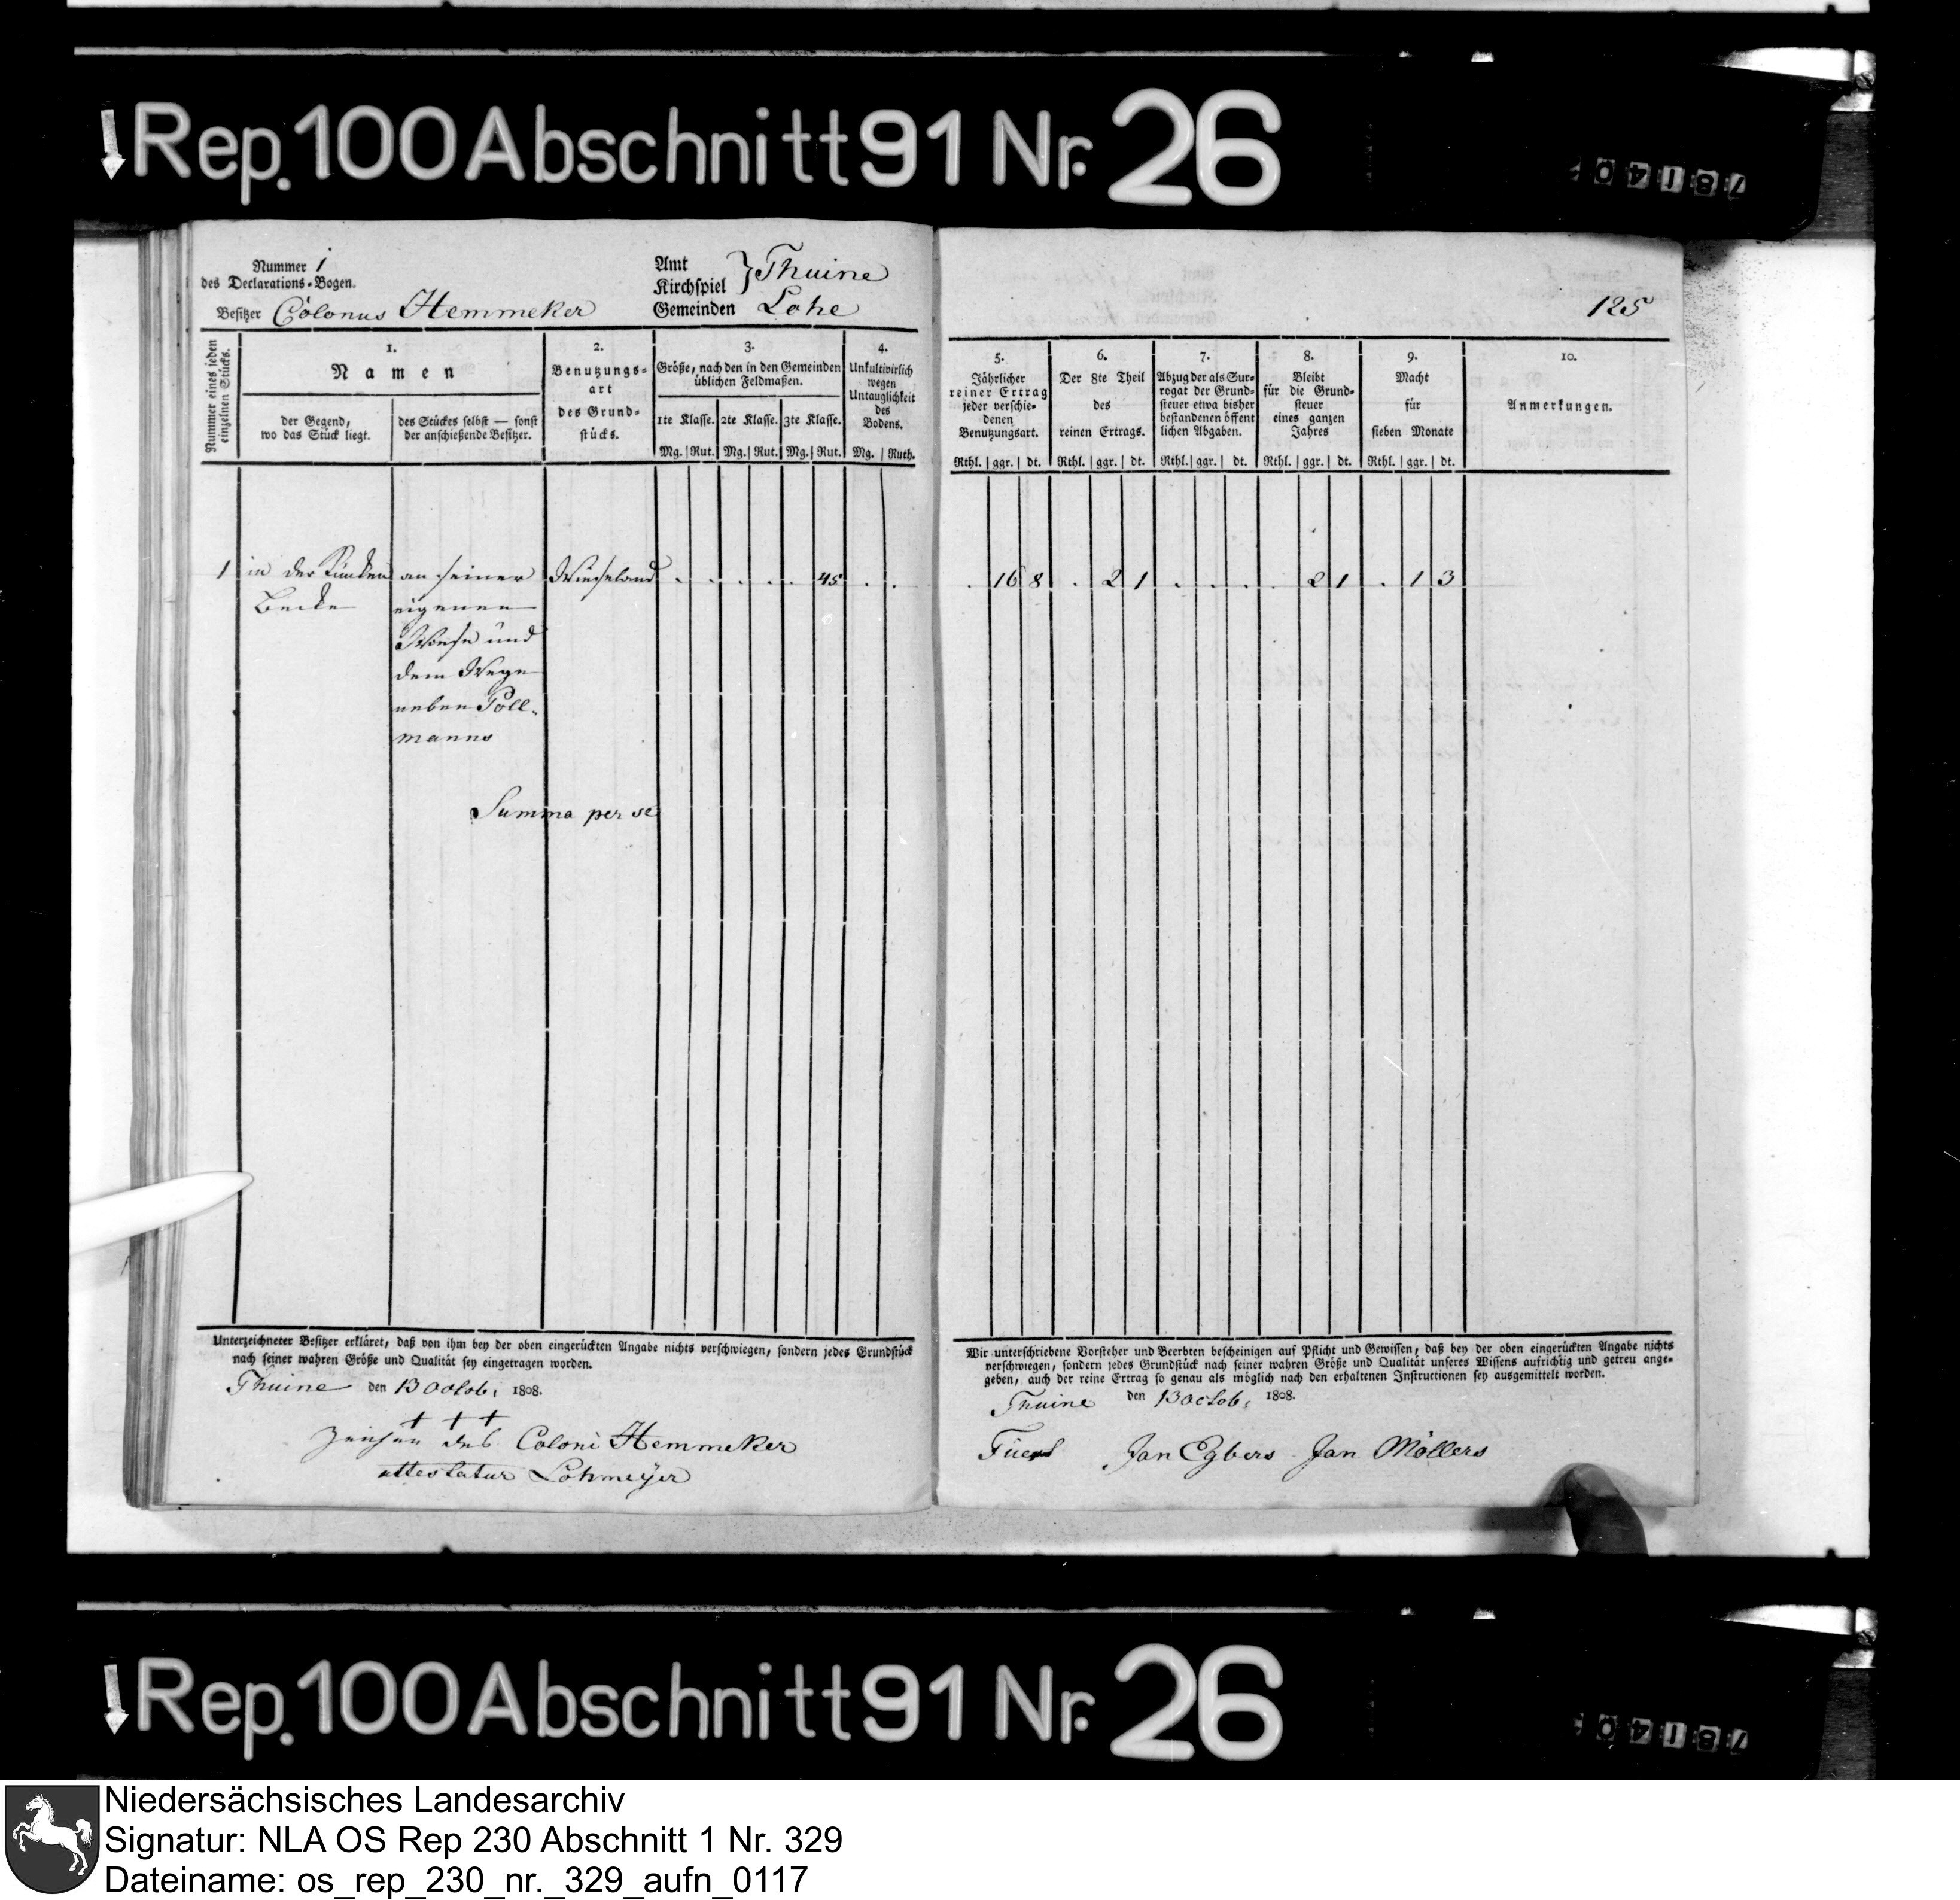 Rep. 100 Abschnitt 91 Nr. 26
78140
Nummer 1
des Declarations-Bogen.
Besitzer Colonus Hemmeker
Amt
Kirchspiel } Thuine
Gemeinden Lohe
125
Nummer eines jeden einzelnen Stücks.
1.
Namen
der Gegend, wo das Stück liegt.
des Stückes selbst — sonst der anschießende Besitzer.
2.
Benutzungs-
art
des Grund-
stücks.
3.
Größe, nach den in den Gemeinden
üblichen Feldmaßen.
1te Klasse. 2te Klasse. 3te Klasse.
Mg. Rut. Mg. Rut. Mg. Rut.
4.
Unkultivirlich
wegen
Untauglichkeit
des
Bodens.
Mg. Ruth.
5.
Jährlicher
reiner Ertrag
jeder verschie-
denen
Benutzungsart.
Rthl. ggr. dt.
6.
Der 8te Theil
des
reinen Ertrags.
Rthl. ggr. dt.
7.
Abzug der als Sur-
rogat der Grund-
steuer etwa bisher
bestandenen öffent
lichen Abgaben.
Rthl. ggr. dt.
8.
Bleibt
für die Grund-
steuer
eines ganzen
Jahres
Rthl. ggr. dt.
9.
Macht
für
sieben Monate
Rthl. ggr. dt.
10.
Anmerkungen.
1 in der an seiner Wieseland . . . . . 45 . . . 16 8 . 2 1 . . . . 2 1 . 1 3
Becke eigenen
Wiese und
dem Wege
neben Poll-
manns
Summa per se
Unterzeichneter Besitzer erkläret, daß von ihm bey der oben eingerückten Angabe nichts verschwiegen, sondern jedes Grundstück
nach seiner wahren Größe und Qualität sey eingetragen worden.
Thuine den 13 Octob. 1808.
+ + +
Zeichen des Coloni Hemmeker
attestatur Lohmeÿer
Wir unterschriebene Vorsteher und Beerbten bescheinigen auf Pflicht und Gewissen, daß bey der oben eingerückten Angabe nichts
verschwiegen, sondern jedes Grundstück nach seiner wahren Größe und Qualität unseres Wissens aufrichtig und getreu ange-
geben, auch der reine Ertrag so genau als möglich nach den erhaltenen Instructionen sey ausgemittelt worden.
Thuine den 13 Octob. 1808.
Jan Egbers Jan Möllers
Rep. 100 Abschnitt 91 Nr. 26
78140
Niedersächsisches Landesarchiv
Signatur: NLA OS Rep 230 Abschnitt 1 Nr. 329
Dateiname: os_rep_230_nr._329_aufn_0117